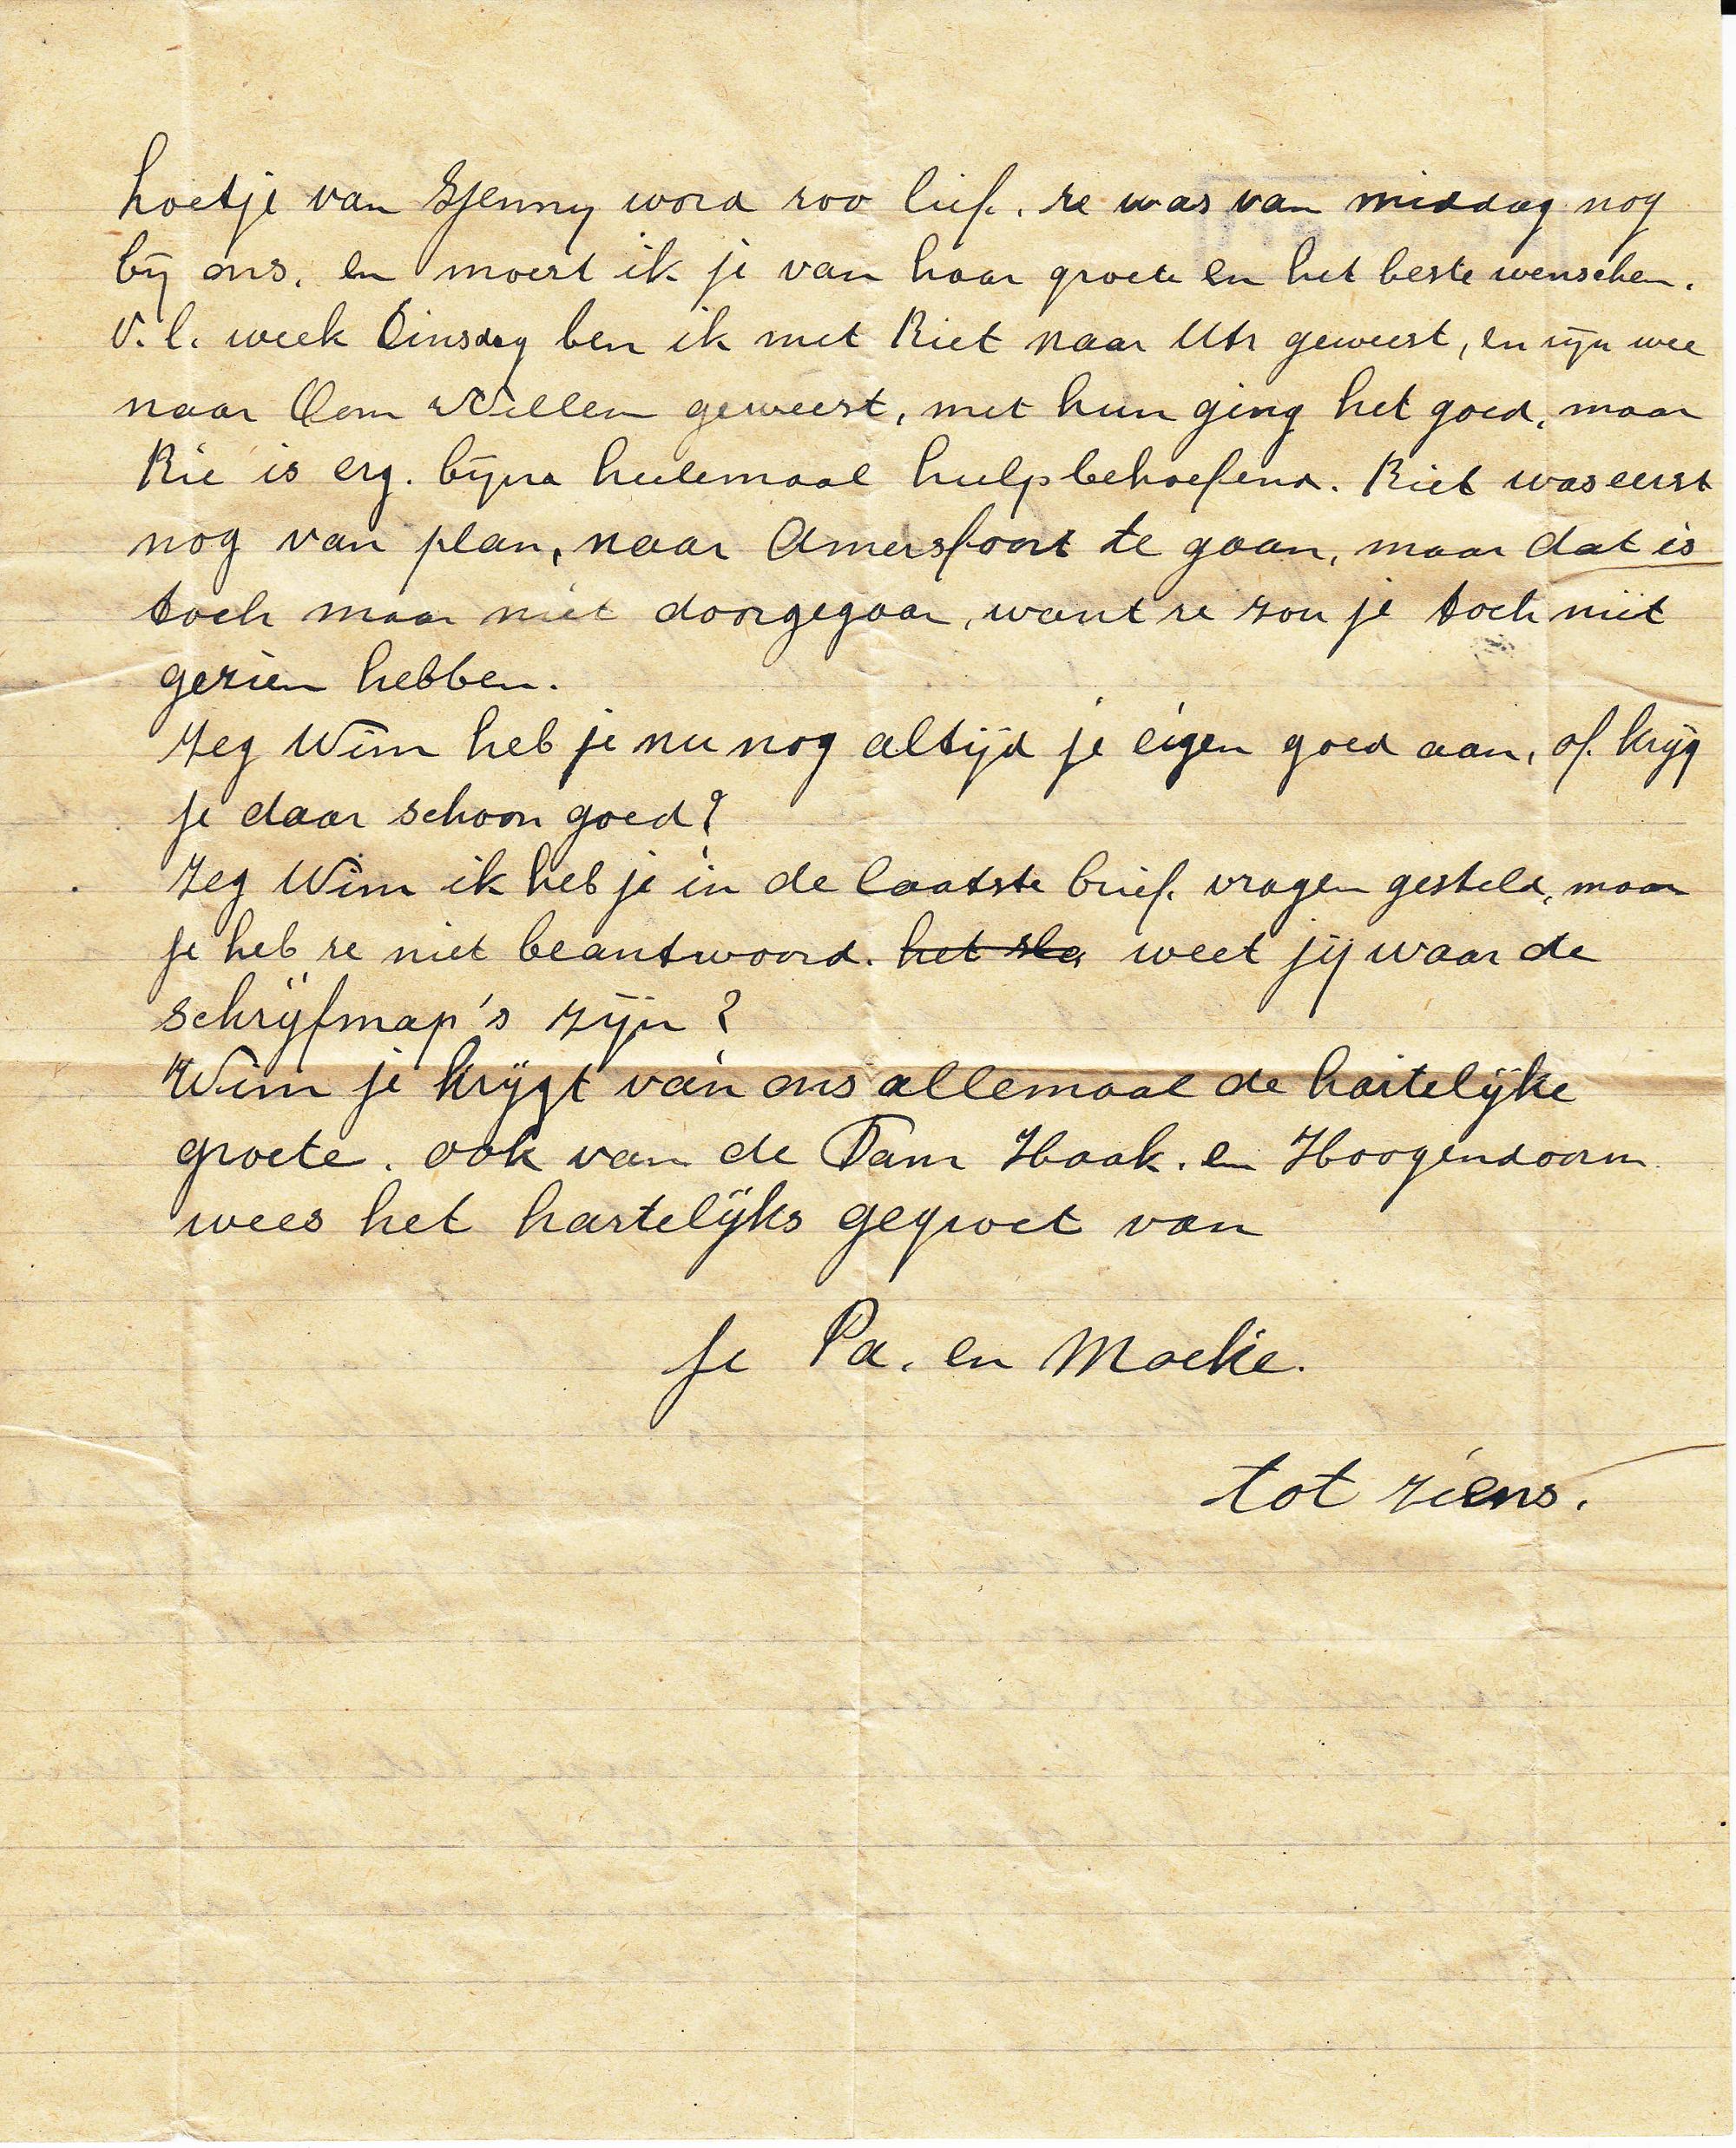 hoetje van Sjenny word zoo lief. ze was van middag nog
bij ons. en moest ik je van haar groete en het beste wenschen.
V. l. week Dinsdag ben ik met Riet naar Utr geweest, en zijn wee
naar Oom Willem geweest, met hun ging het goed, maar
Rie is erg. bijna heelemaal hulpbehoefend. Riet was eerst
nog van plan, naar Amersfoort te gaan, maar dat is
toch maar niet doorgegaan, want ze zou je toch niet
gezien hebben.
Zeg Wim heb je nu nog altijd je eigen goed aan, of krijg
je daar schoon goed?
Zeg Wim ik heb je in de laatste brief. vragen gesteld, maar
je heb ze niet beantwoord. het sta weet jij waar de
schrijfmap's zijn?
Wim je krijgt van ons allemaal de hartelijke
groete. ook van de Fam Haak. en Hoogendoorn
wees het hartelijks gegroet van
Je Pa. en Moekie.
tot ziens.